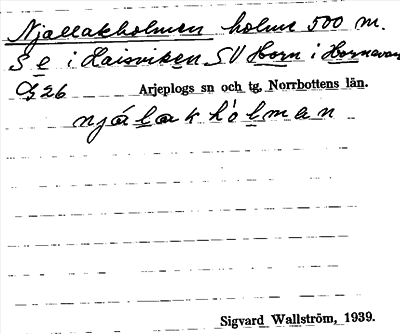 Njallakholmen holme 500 m.
S e i Haisviken SV Horn i Hornavan
Arjeplogs sn och tg, Norrbottens län.
njálakhólman
Sigvard Wallström, 1939.